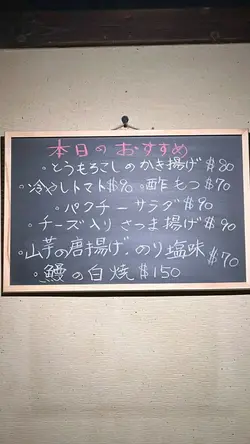 本日のおすすめ
・とうもろこしのかき揚げ $80
・冷やしトマト $90 ・酢もつ $70
・パクチーサラダ $90
・チーズ入りさつま揚げ $90
・山芋の唐揚げ・のり塩味 $70
・鰻の白焼 $150